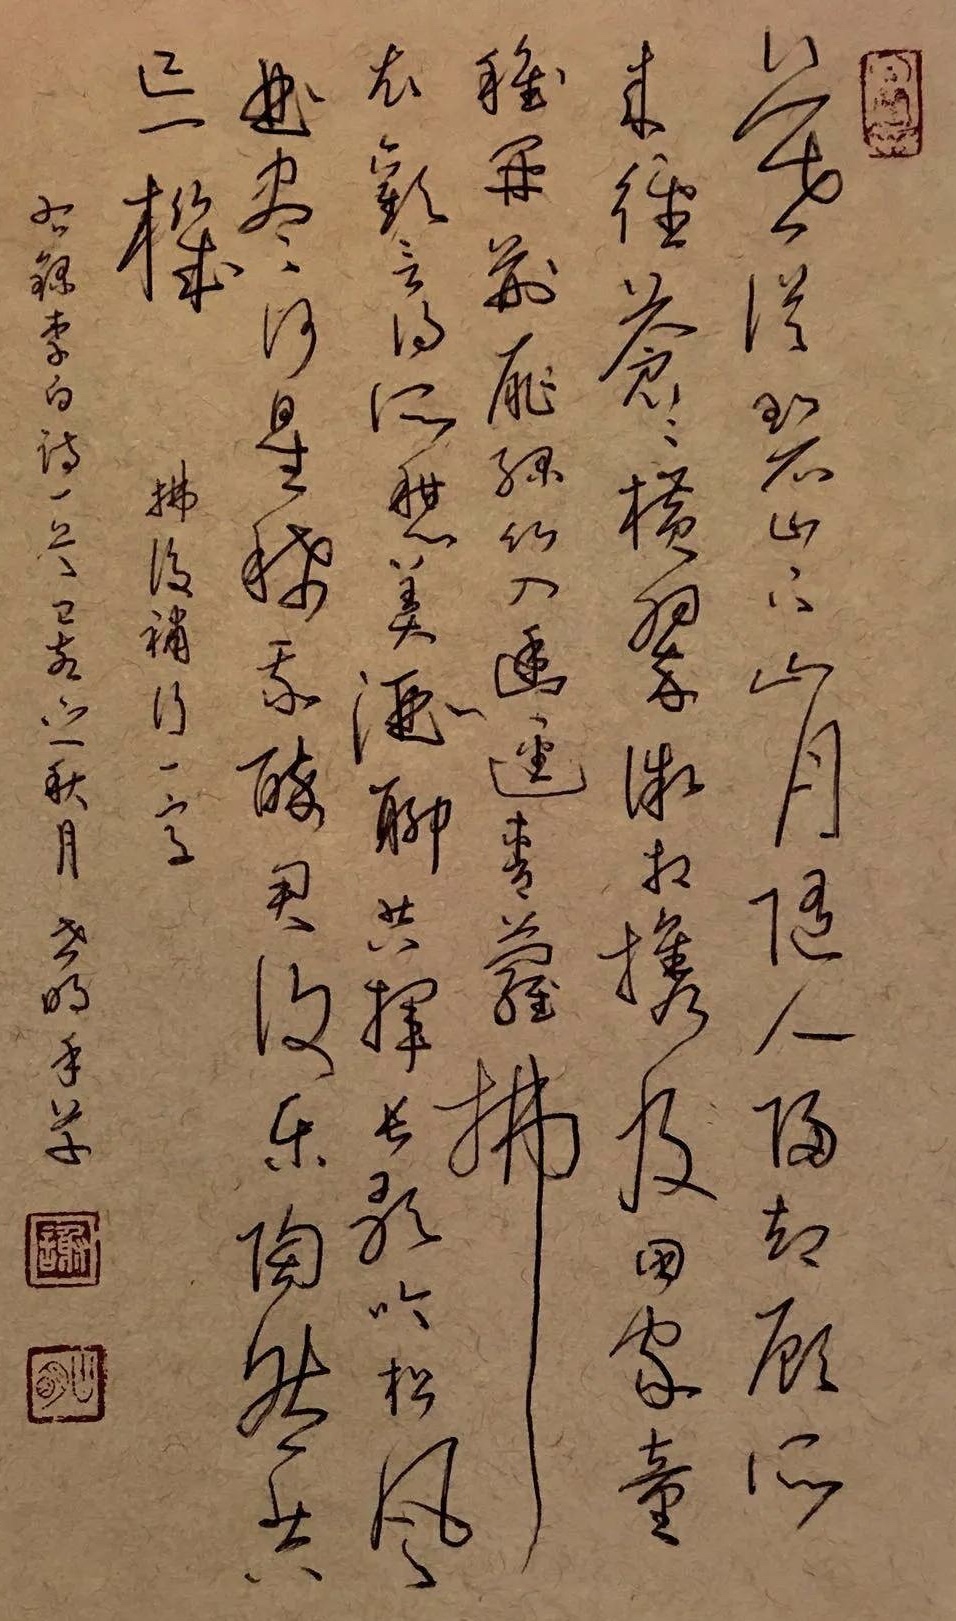 暮從碧山下山月隨人歸却顾所
来徑蒼〻橫翠微相攜及田家童
稚开荊扉綠竹入幽逕青蘿拂
衣歡言得所憩美酒聊共揮長歌吟松風
曲尽河星稀我醉君復乐陶然共
忘機
拂後補行一字
右錄李白詩一首己亥秋月明手草